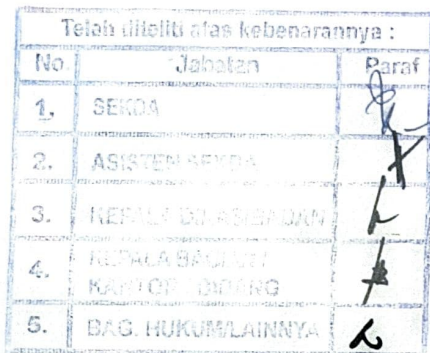 Telah diteliti atas kebenarannya :
No. Jabatan Paraf
1. SEKDA
2. ASISTEN SEKDA
3. KEPALA DINAS/BADAN
4. KEPALA BAGIAN/
KANTOR BIDANG
5. BAG. HUKUM/LAINNYA